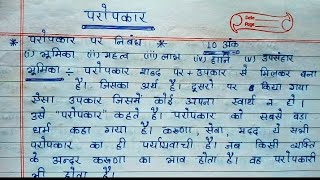 परोपकार
* परोपकार पर निबंध 10 अंक
(i) भूमिका (ii) महत्व (iii) लाभ (iv) हानि (v) उपसंहार
भूमिका ÷ परोपकार शब्द पर + उपकार से मिलकर बना
है। जिसका अर्थ है। दूसरो पर किया गया
ऐसा उपकार जिसमें कोई अपना स्वार्थ न हो।
उसे "परोपकार" कहते हैं। परोपकार को सबसे बडा
धर्म कहा गया है। करूणा, सेवा, मदद ये सभी
परोपकार का ही पर्यायवाची है। जब किसी व्यक्ति
के अन्दर करूणा का भाव होता है। वह परोपकारी
भी होता है।